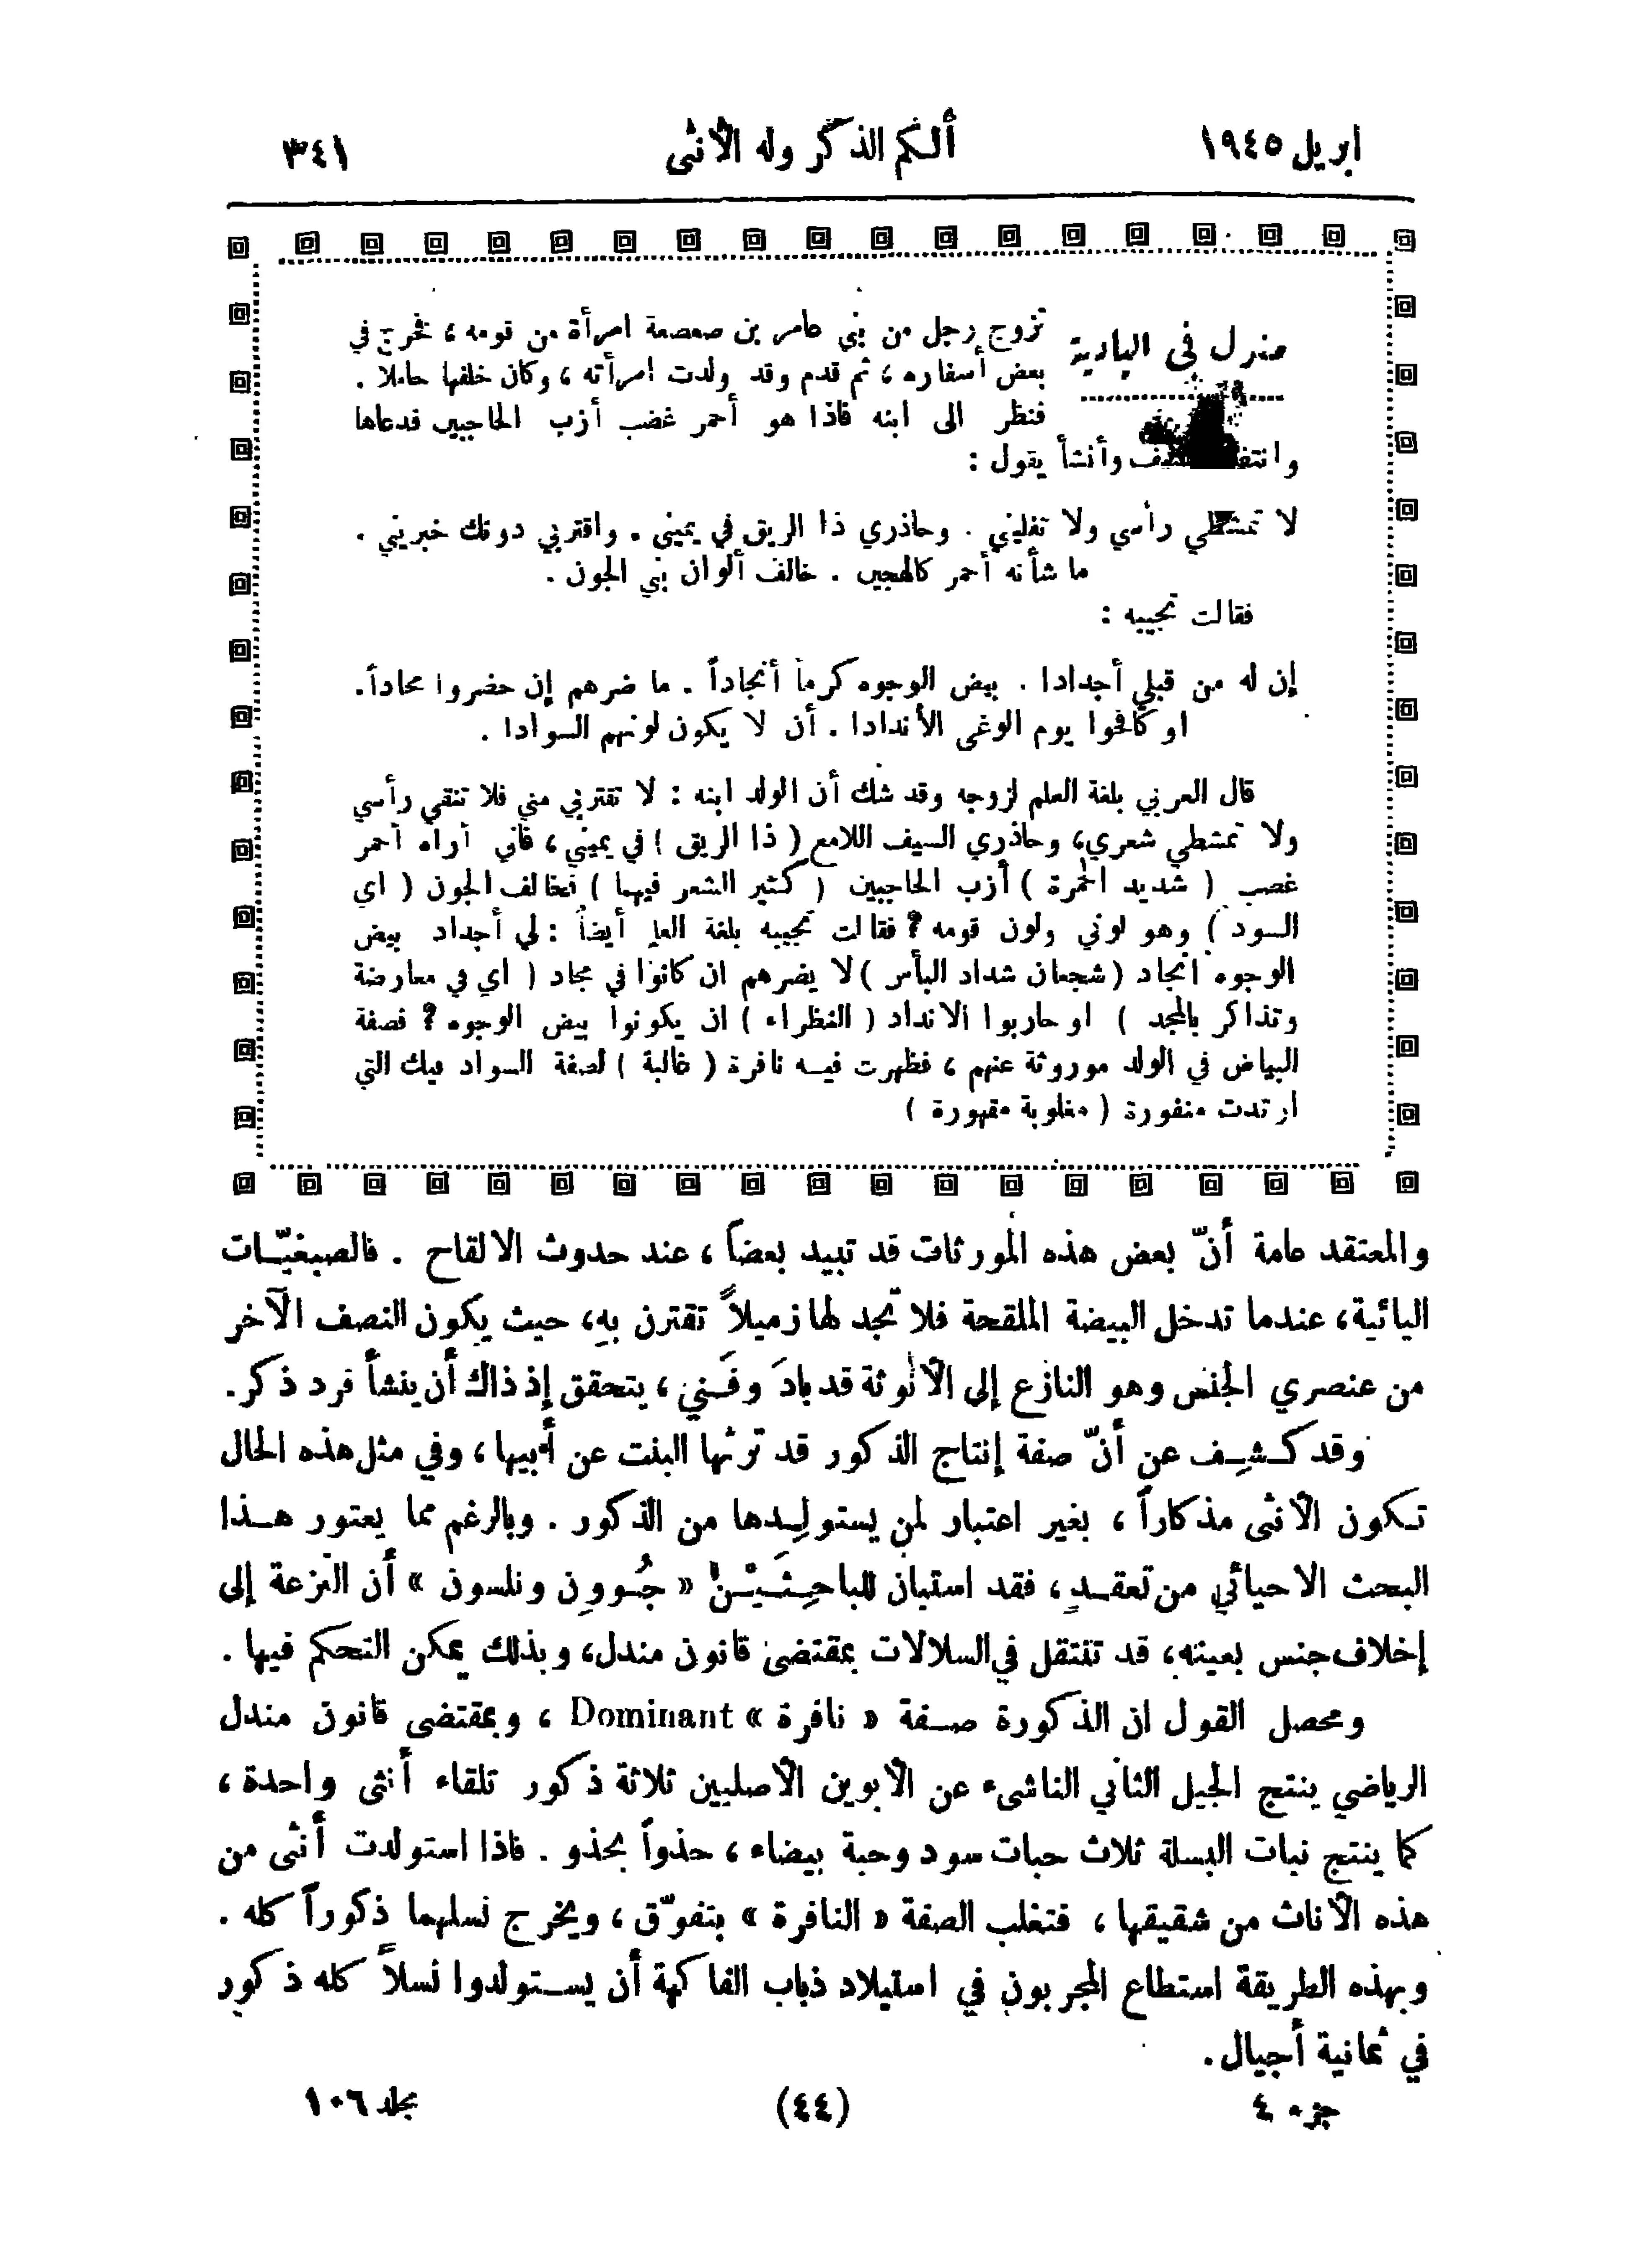 ابريل ١٩٤٥
ألكم الذكر وله الأنثى
٣٤١
مندل في البادية
تزوج رجل من بني عامر بن صعصعة امرأة من قومه ، فخرج في
بعض أسفاره ، ثم قدم وقد ولدت امرأته ، وكان خلفها حاملا .
فنظر الى ابنه فاذا هو أحمر غضب أزب الحاجبين فدعاها
وأنشأ يقول :
لا تمشطي رأسي ولا تفليني . وحاذري ذا الريق في يميني . واقتربي دونك خبريني .
ما شأنه أحمر كالهجين . خالف ألوان بني الجون .
فقالت تجيبه :
إن له من قبلي أجدادا . بيض الوجوه كرماً أنجاداً . ما ضرهم إن حضروا محاداً .
او كافحوا يوم الوغى الأندادا . أن لا يكون لونهم السوادا .
قال العربي بلغة العلم لزوجه وقد شك أن الولد ابنه : لا تقتربي مني فلا تنقي رأسي
ولا تمشطي شعري، وحاذري السيف اللامع ( ذا الريق ) في يميني ، فاني أراه أحمر
غضب ( شديد الحمرة ) أزب الحاجبين ( كثير الشعر فيهما ) تخالف الجون ( اي
السود ) وهو لوني ولون قومه ? فقالت تجيبه بلغة العلم أيضاً : لي أجداد بيض
الوجوه انجاد ( شجعان شداد البأس ) لا يضرهم ان كانوا في مجاد ( اي في معارضة
وتذاكر بالمجد ) او حاربوا الانداد ( النظراء ) ان يكونوا بيض الوجوه ? فصفة
البياض في الولد موروثة عنهم ، فظهرت فيه نافرة ( غالبة ) لصفة السواد فيك التي
ارتدت منفورة ( مغلوبة مقهورة )
والمعتقد عامة أنّ بعض هذه المورثات قد تبيد بعضاً ، عند حدوث الالقاح . فالصبغيّات
اليائية ، عندما تدخل البيضة الملقحة فلا تجد لها زميلاً تقترن بهِ، حيث يكون النصف الآخر
من عنصري الجنس وهو النازع إلى الأنوثة قد بادَ وفَني ، يتحقق إذ ذاك أن ينشأ فرد ذكر .
وقد كُشِف عن أنّ صفة إنتاج الذكور قد ترثها البنت عن أبيها ، وفي مثل هذه الحال
تكون الأنثى مذكاراً ، بغير اعتبار لمن يستولِدها من الذكور . وبالرغم مما يعتور هذا
البحث الاحيائي من تعقد ، فقد استبان للباحِثَيْن « جُوون ونلسون » أن النزعة إلى
إخلاف جنس بعينه ، قد تنتقل في السلالات بمقتضى قانون مندل، وبذلك يمكن التحكم فيها .
ومحصل القول ان الذكورة صفة « نافرة » Dominant ، وبمقتضى قانون مندل
الرياضي ينتج الجيل الثاني الناشىء عن الأبوين الأصليين ثلاثة ذكور تلقاء أنثى واحدة ،
كما ينتج نبات البسلة ثلاث حبات سود وحبة بيضاء ، حذواً بحذو . فاذا استولدت أنثى من
هذه الأناث من شقيقها ، فتغلب الصفة « النافرة » بتفوّق ، ويخرج نسلهما ذكوراً كله .
وبهذه الطريقة استطاع المجربون في استيلاد ذباب الفاكهة أن يستولدوا نسلاً كله ذكور
في ثمانية أجيال .
جزء ٤
(٤٤)
مجلد ١٠٦